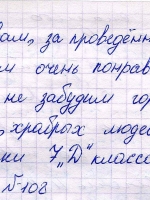 вам, за проведённ
м очень понрав
не забудим гор
, храбрых модес
ки 7„Д" класса
№108